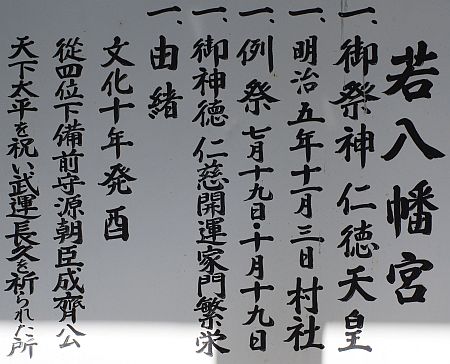 若八幡宮
一、御祭神 仁徳天皇
一、明治五年十一月三日村社
一、例祭 七月十九日・十月十九日
一、御神徳 仁慈開運家門繁栄
一、由緒
文化十年発酉
従四位下備前守源朝臣成齊公
天下太平を祝い武運長久を祈られた所